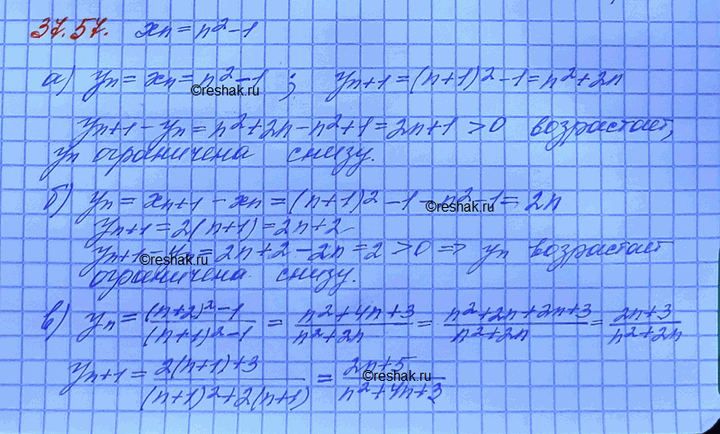 37.57. xn = n² - 1
а) yn = xn = n² - 1 ; yn+1 = (n+1)² - 1 = n² + 2n
©reshak.ru
yn+1 - yn = n² + 2n - n² + 1 = 2n + 1 > 0 возрастает,
yn ограничена снизу.
б) yn = xn+1 - xn = (n+1)² - 1 - n² - 1 = 2n
©reshak.ru
yn+1 = 2(n+1) = 2n + 2
yn+1 - yn = 2n + 2 - 2n = 2 > 0 => yn возрастает
©reshak.ru
ограничена снизу.
в) yn = ((n+2)² - 1)/((n+1)² - 1) = (n² + 4n + 3)/(n² + 2n) = (n² + 2n + 2n + 3)/(n² + 2n) = (2n + 3)/(n² + 2n)
yn+1 = (2(n+1) + 3)/((n+1)² + 2(n+1)) = (2n + 5)/(n² + 4n + 3)
©reshak.ru